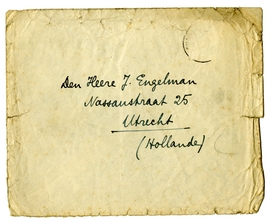 Den Heere J. Engelman
Nassaustraat 25
Utrecht
(Hollande)